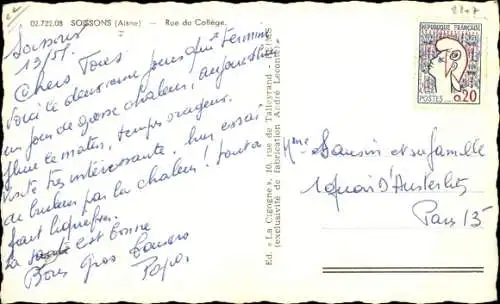 2207
02.722.08 SOISSONS (Aisne) — Rue du Collège.
Soissons
13/5/
Chers Tous
Voici le deuxième jours qui termine
un jour de grosse chaleur, aujourd'hui
pluie le matin, temps orageux.
visite très intéressante. hier essai
de par la chaleur! tout
faut
la santé est bonne
Bons Gros baisers
Papa.
Ed. « La Cigogne », 10, rue de Talleyrand -
(exclusivité de fabrication André Leconte)
RÉPUBLIQUE FRANÇAISE
POSTES 0,20
Mme Sansin et sa famille
1 quai D'Austerlitz
Paris 13